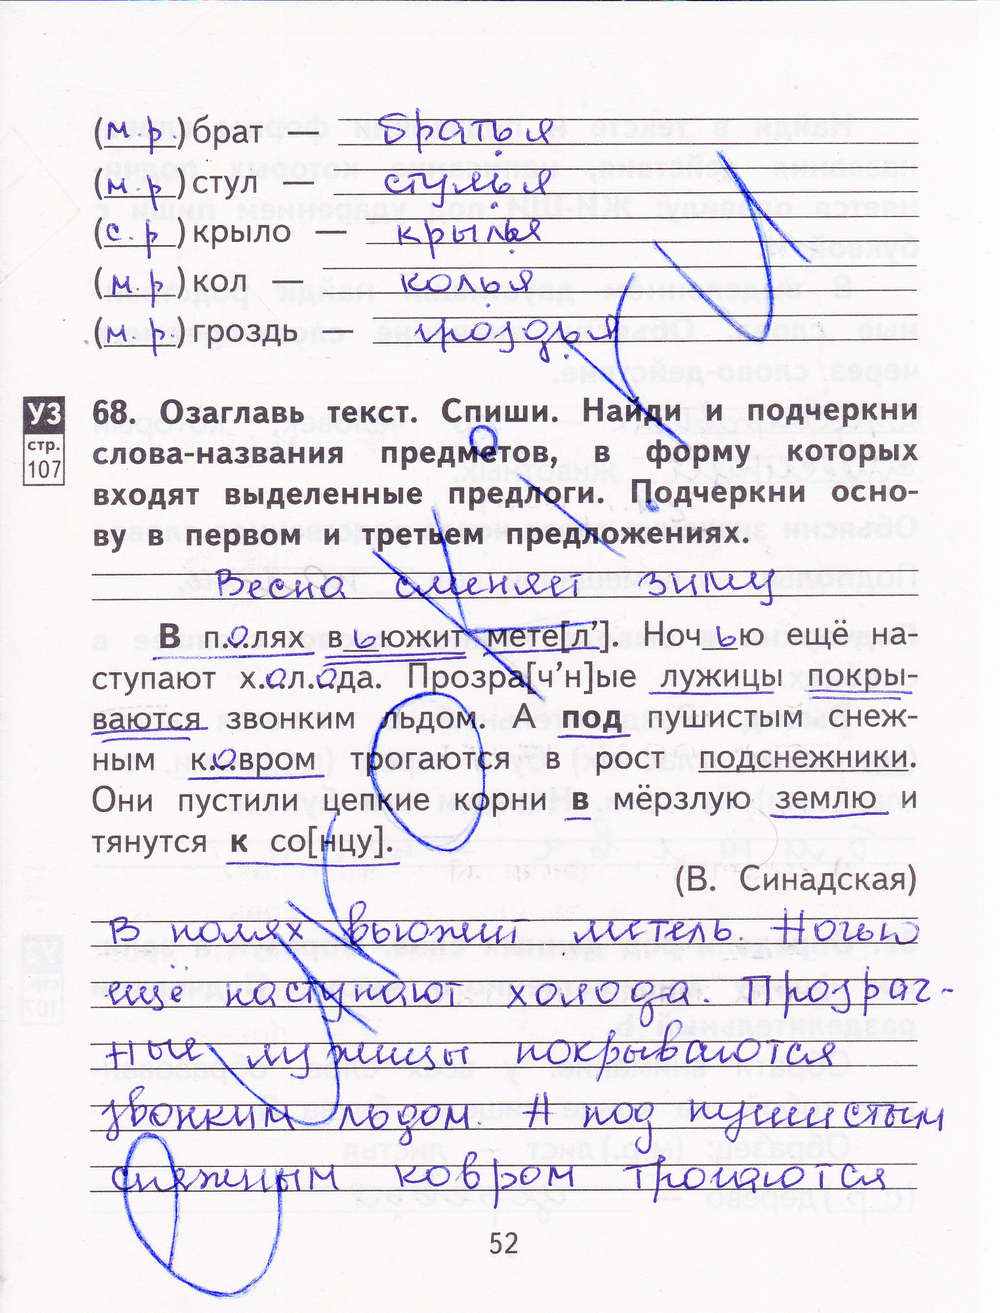 (м.р.) брат — братья
(м.р) стул — стулья
(с.р) крыло — крылья
(м.р.) кол — колья
(м.р.) гроздь — гроздья
УЗ
стр.
107
68. Озаглавь текст. Спиши. Найди и подчеркни
слова-названия предметов, в форму которых
входят выделенные предлоги. Подчеркни осно-
ву в первом и третьем предложениях.
Весна сменяет зиму
В п.о.лях вьюжит мете[л’]. Ночью ещё на-
ступают х.о.л.о.да. Прозра[ч’н]ые лужицы покры-
ваются звонким льдом. А под пушистым снеж-
ным к.о.вром трогаются в рост подснежники.
Они пустили цепкие корни в мёрзлую землю и
тянутся к со[нцу].
(В. Синадская)
В полях вьюжит метель. Ночью
ещё наступают холода. Прозрач-
ные лужицы покрываются
звонким льдом. А под пушистым
снежным ковром трогаются
52